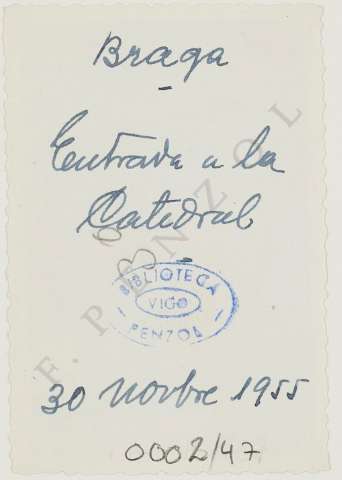 Braga
Entrada a la
Catedral
BIBLIOTECA
VIGO
PENZOL
F. PENZOL
30 novbre 1955
0002/47